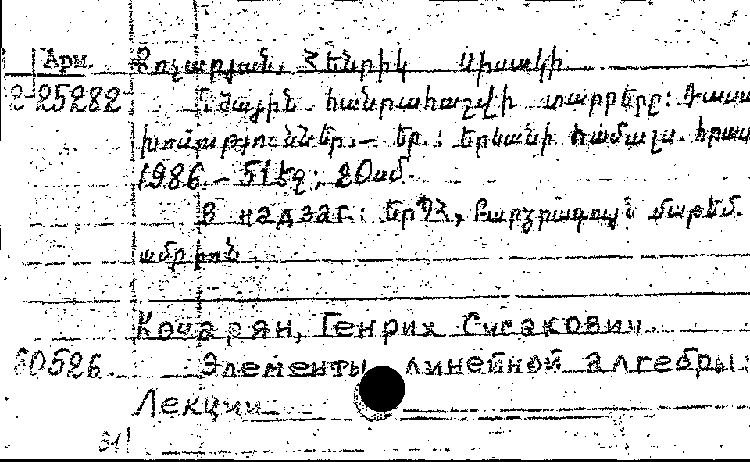 Арм.
Քոչարյան, Հենրիկ Սիսակի
2-25282
Գծային հանրահաշվի տարրերը: Դասա
խոսություններ. – Եր.: Երևանի համալս. հրատ
1986. – 51 էջ; 20սմ.
В надзаг.: ԵրՊՀ, Բարձրագույն մաթեմ.
ամբիոն
Кочарян, Генрих Сисакович.
60526. Элементы линейной алгебры:
Лекции